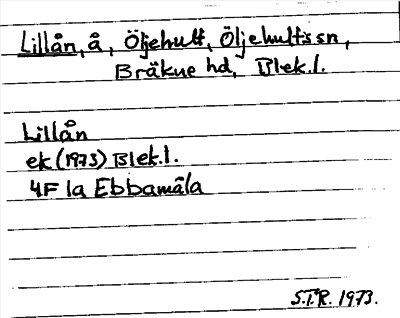 Lillån, å, Öljehult, Öljehults sn,
Bräkne hd, Blek.l.
Lillån
ek (1973) Blek.l.
4F 1a Ebbamåla
S.T.R. 1973.